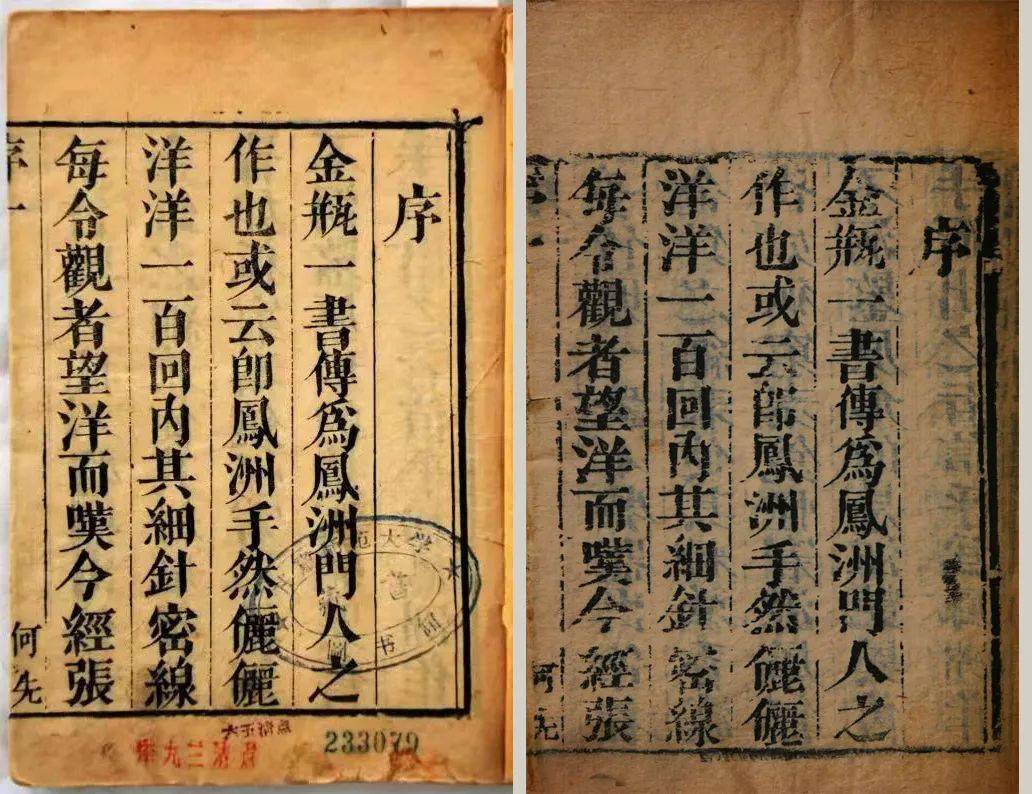 序
金瓶一書傳爲鳳洲門人之
作也或云卽鳳洲手然儷儷
洋洋一百回內其細針密線
每令觀者望洋而嘆今經張
序一
何先
范大学
书
233079
序
金瓶一書傳爲鳳洲門人之
作也或云卽鳳洲手然儷儷
洋洋一百回內其細針密線
每令觀者望洋而嘆今經張
序一
何先